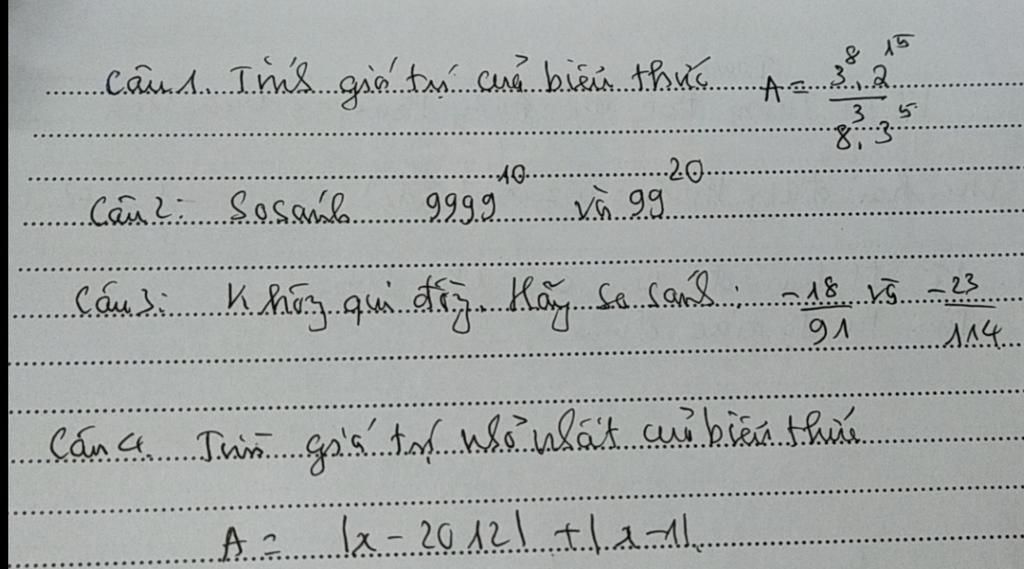 Câu 1. Tính giá trị của biểu thức A = \frac{3^8 . 2^{15}}{8^3 . 3^5}
Câu 2: So sánh 9999^{10} và 99^{20}
Câu 3: Không qui đồng. Hãy so sánh : -\frac{18}{91} và -\frac{23}{114}
Câu 4. Tìm giá trị nhỏ nhất của biểu thức
A = |x - 2012| + |x - 1|.